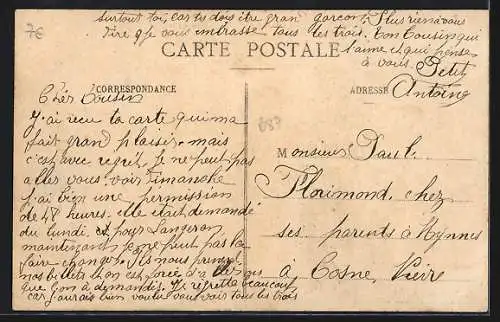 7€
surtout toi, car tu dois être gran garçon. Plus rien a vous
dire q je vous embrasse tous les trois. ton Cousin qui
t'aime et qui pense
à vous. Petit
Antoine
CARTE POSTALE
CORRESPONDANCE
ADRESSE
Cher Cousin
J'ai recu la carte qui m'a
fait grand plaisir, mais
c'est avec regret. Je ne peut pas
aller vous voir Dimanche
j'ai bien une permission
de 48 heures. elle était demandé
du lundi. et pour Langeron
maintenant je ne peut pas la
faire changer. ils nous prennent
nos billets et on est forcé d'a
que l'on a demandés. Je regrette beaucoup
car j'aurais bien voulu vous voir tous les trois
Monsieur Paul.
Florimond, chez
ses parents à Mynnes
à Cosne, Nièvre